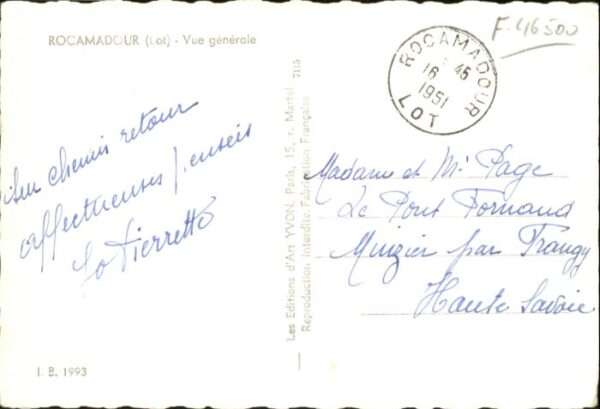 ROCAMADOUR (Lot) - Vue générale
F. 46500
ROCAMADOUR
16 45
1951
LOT
chemin retour
affectueuses pensées
Pierrette
Les Editions d'Art YVON, Paris, 15, r. Martel
Reproduction Interdite. Fabrication Française
7115
Madame et Mr Page
Le Pont Fornand
Minzier par Frangy
Haute Savoie
I. B. 1993